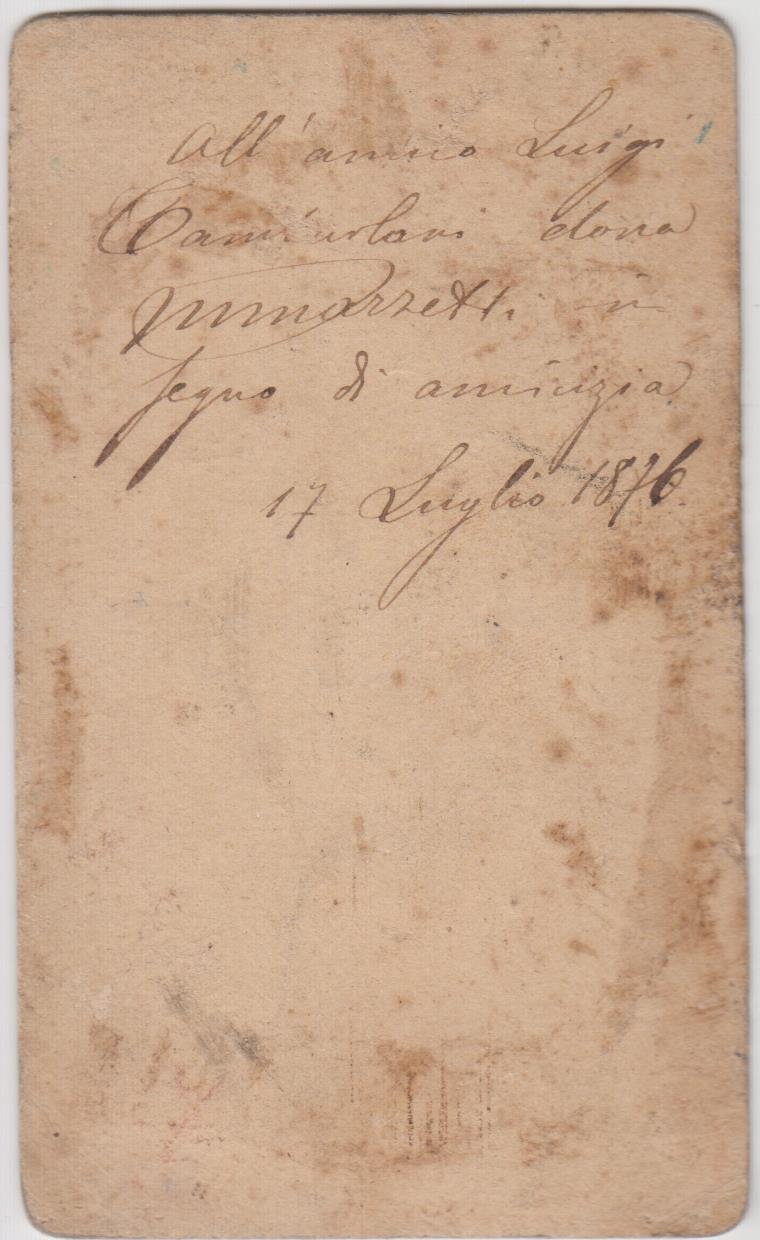 All'amico Luigi
dona
in
segno di amicizia
17 Luglio 1876